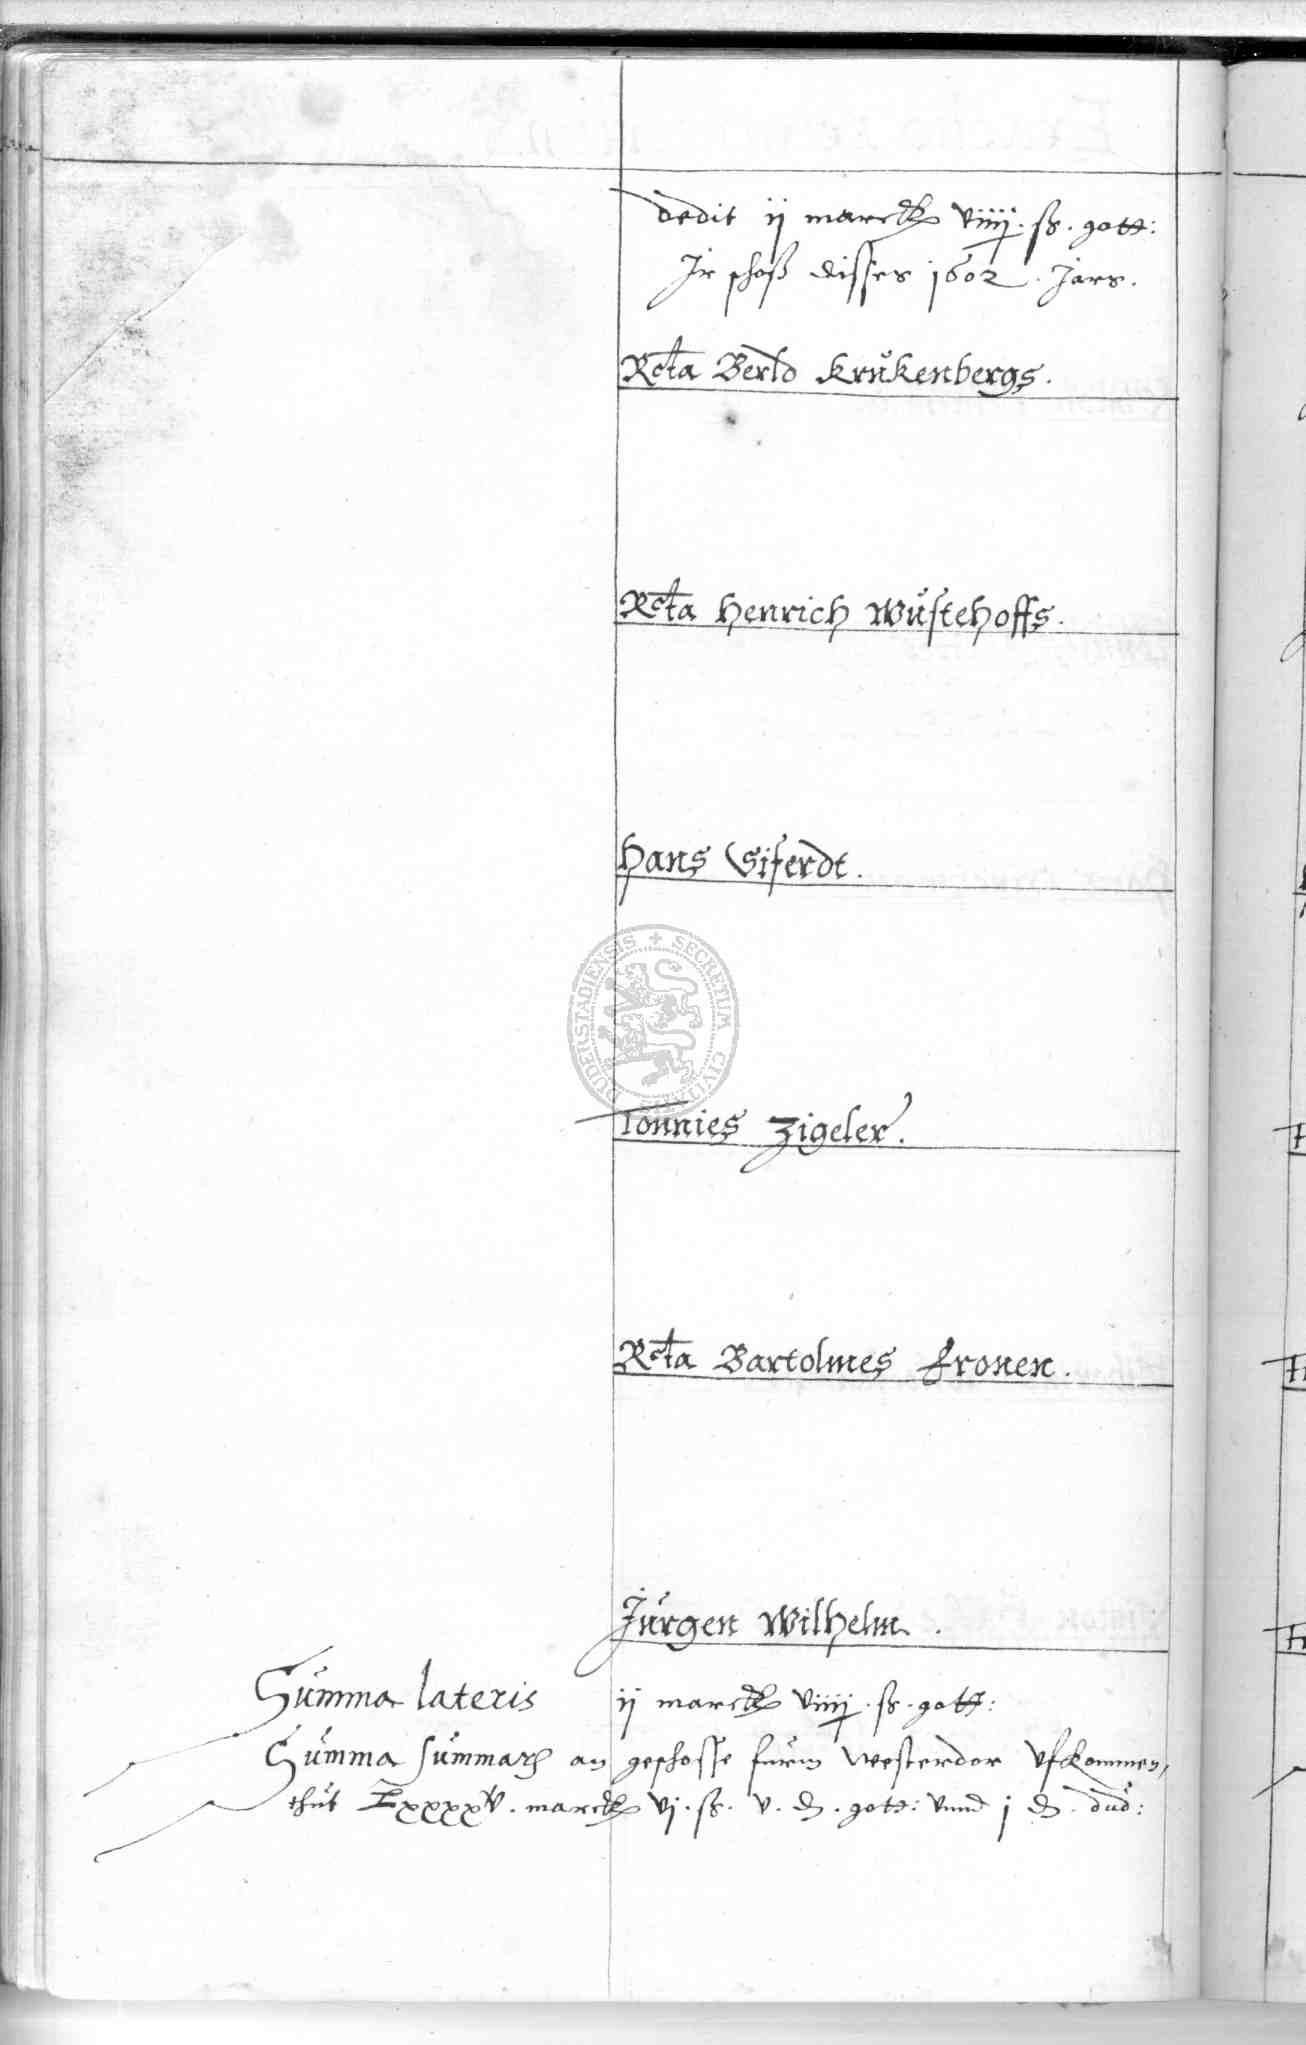 dedit ij marck viiij. ß. gott:
Jr schoß disses 1602. Jars.
Rcta Berld Krukenbergs.
Rcta Henrich Wustehoffs.
Hans Siferdt.
SECRETUM CIVITATIS DUDERSTADIENSIS
Tonnies Zigeler.
Rcta Bartolmes Fronen.
Jurgen Wilhelm.
Summa lateris ij marck viiij. ß. gott:
Summa summarum an geschosse furm Westerdor Ufkommen,
thut Lxxxxv. marck vj. ß. v. d. gott: unnd j d. dud: